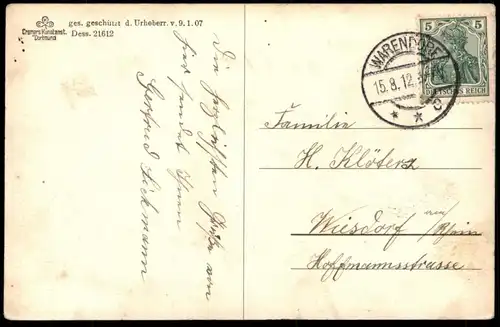 Cramers Kunstanst.
Dortmund
ges. geschützt d. Urheberr. v. 9. 1. 07
Dess. 21612
Die herzlichsten Grüße von
hier sendet Ihnen
Gertrud
WARENDORF
15.8.12.
* * c
5 5
DEUTSCHES REICH
Familie
H. Klöters
Wiesdorf am/Rhein
Hoffmannsstrasse